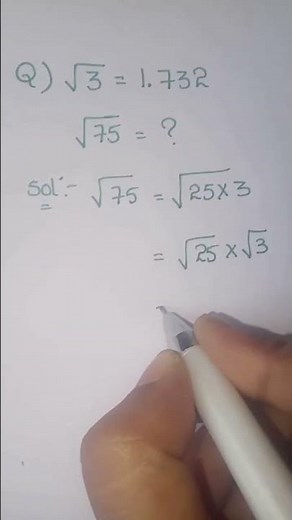 Q) √3 = 1.732
√75 = ?
Sol:- √75 = √25×3
= √25 × √3